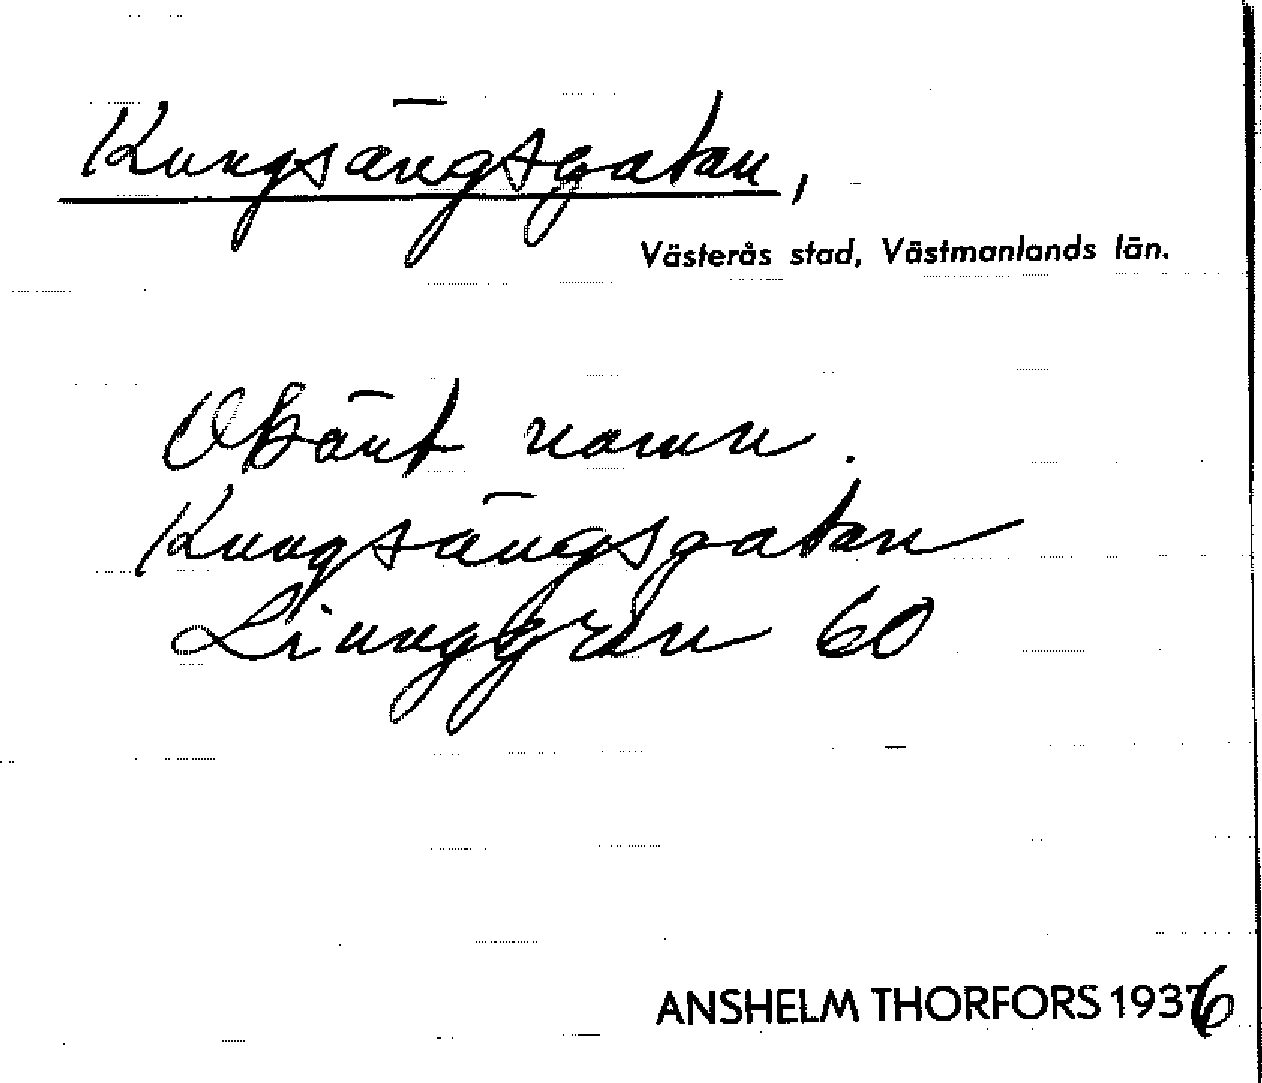 Kungsängsgatan,
Västerås stad, Västmanlands län.
Okänt namn.
Kungsängsgatan
Liunggren 60
ANSHELM THORFORS 1936